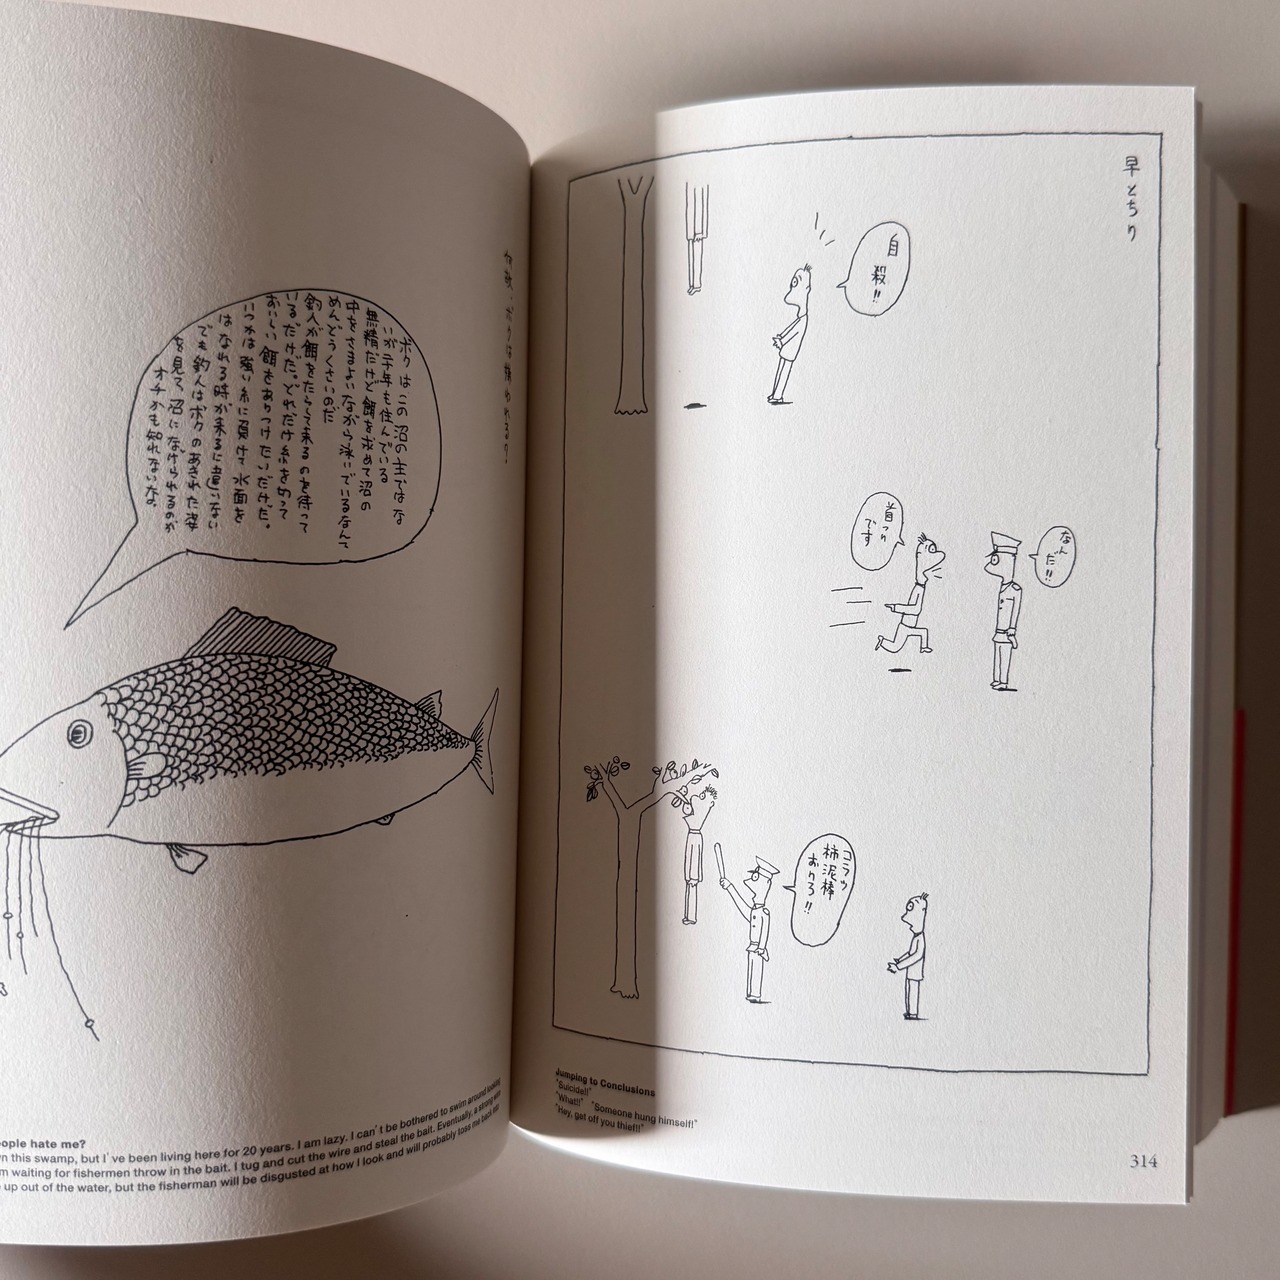 何故、ボクは嫌われる
ボクはこの沼の主ではな
いが年も住んでいる
無精だけど餌を求めて沼の
中をさまよいながら泳いでいるなんて
めんどうくさいのだ
釣人が餌をたらして来るのを待って
いるだけだ。どれだけ糸を切って
おいしい餌をありつけたいだけだ。
いつかは強い糸に負けて水面を
はなれる時が来るに違いない
でも釣人はボクのあきれた姿
を見て沼になげられるのが
オチかも知れないな。
eople hate me?
n this swamp, but I've been living here for 20 years. I am lazy. I can't be bothered to swim around looking
m waiting for fishermen throw in the bait. I tug and cut the wire and steal the bait. Eventually, a strong wire
up out of the water, but the fisherman will be disgusted at how I look and will probably toss me back into
早とちり
自殺!!
なんだ!!
首つり
です
コラッ
柿泥棒
おりろ!!
Jumping to Conclusions
"Suicide!!"
"What!!" "Someone hung himself!"
"Hey, get off you thief!!"
314